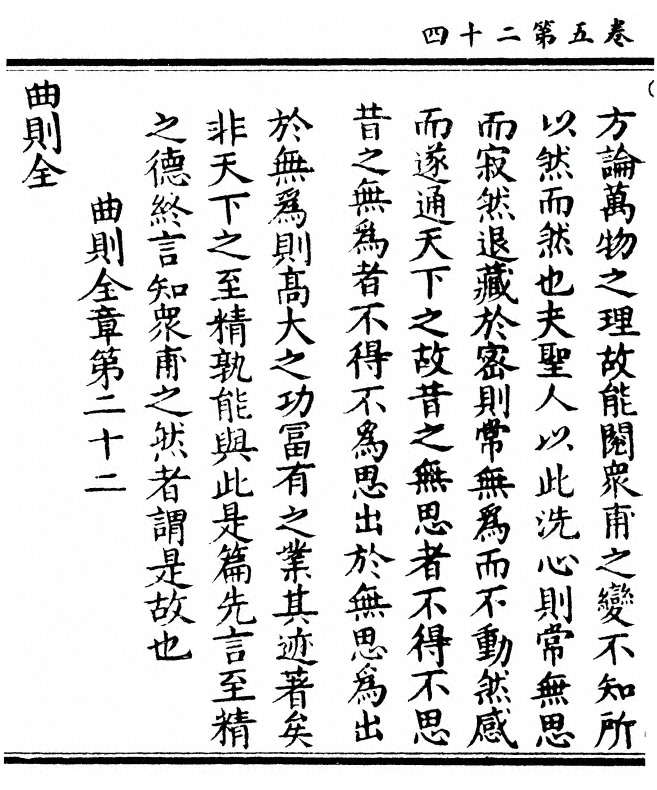 卷五第二十四
方論萬物之理故能閱衆甫之變不知所
以然而然也夫聖人以此洗心則常無思
而寂然退藏於密則常無為而不動然感
而遂通天下之故昔之無思者不得不思
昔之無為者不得不為思出於無思為出
於無為則髙大之功冨有之業其迹著矣
非天下之至精孰能與此是篇先言至精
之德終言知衆甫之然者謂是故也
曲則全章第二十二
曲則全